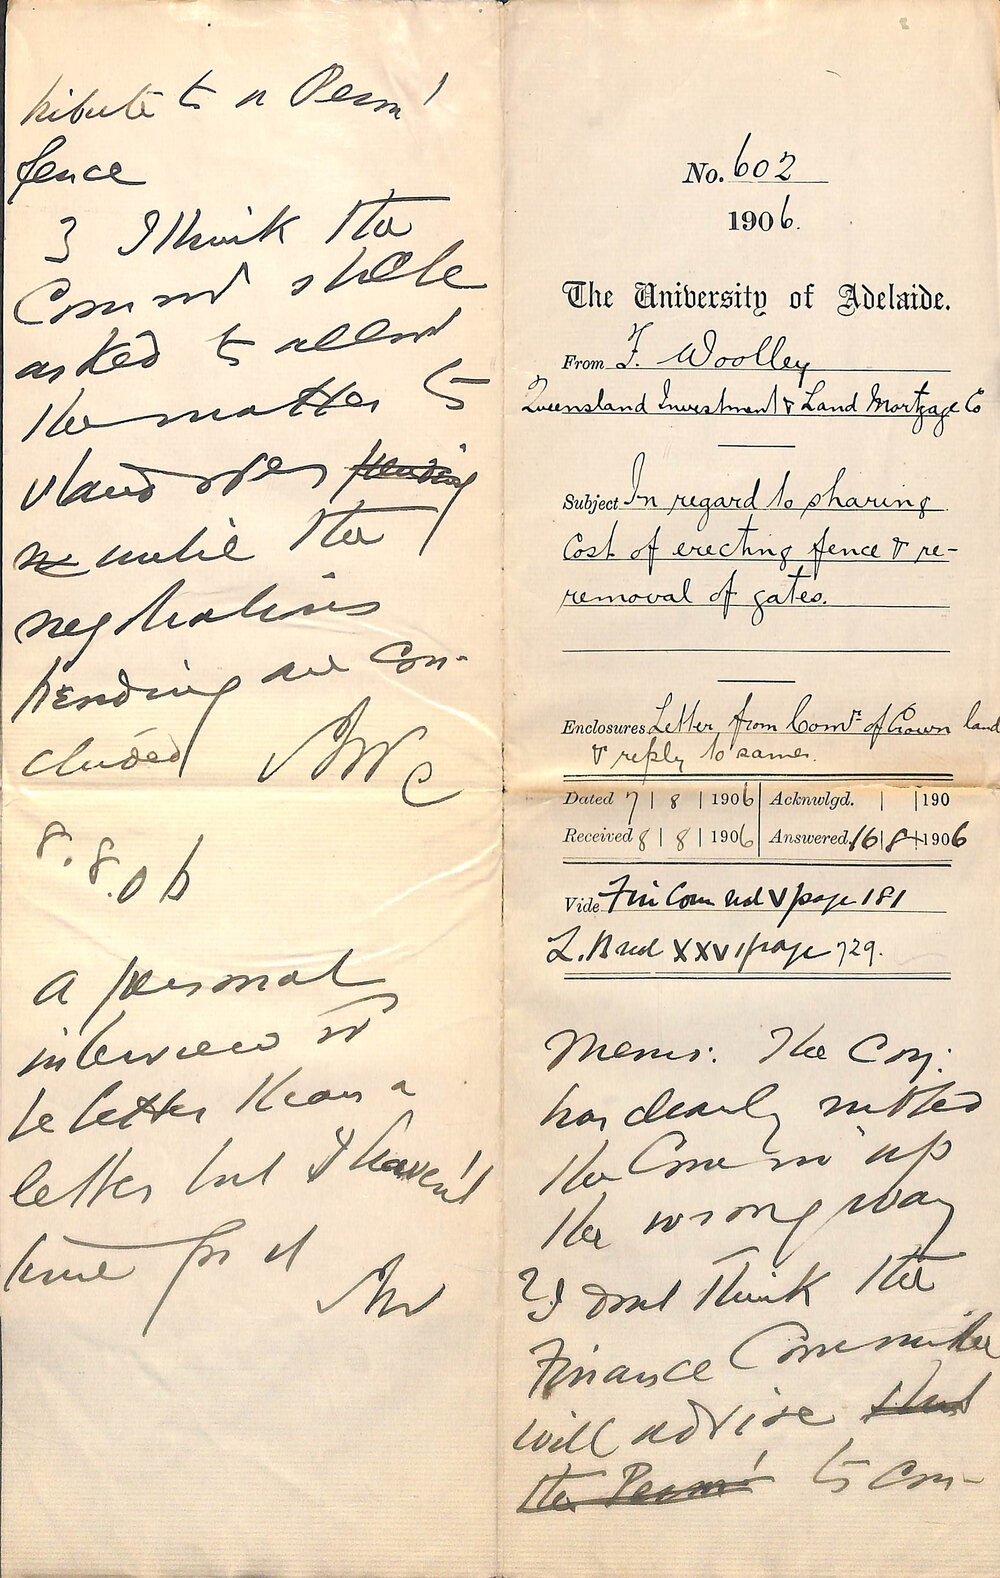 No. 602
1906.
The University of Adelaide.
From F. Woolley
Queensland Investment & Land Mortgage Co
Subject In regard to sharing
Cost of erecting fence & re-
removal of gates.
Enclosures Letter from Comr. of Crown land
& reply to same.
Dated 7 | 8 | 1906 | Acknwlgd. | | 190
Received 8 | 8 | 1906 | Answered. 16 | 8 | 1906
Vide Fin Com vol V page 181
L. B vol XXVI page 729.
Memo: The Coy:
has clearly rubbed
the Comr up
the wrong way
2 I dont think the
Finance Committee
will advise that
the Perm' to con-
tribute to a Perm'
fence
3 I think the
Comr sh be
asked to allow
the matter to
stand over pending
until the
negotiations
pending are con-
cluded
8.8.06
a personal
interview wd
be better than a
letter but I haven't
time for it